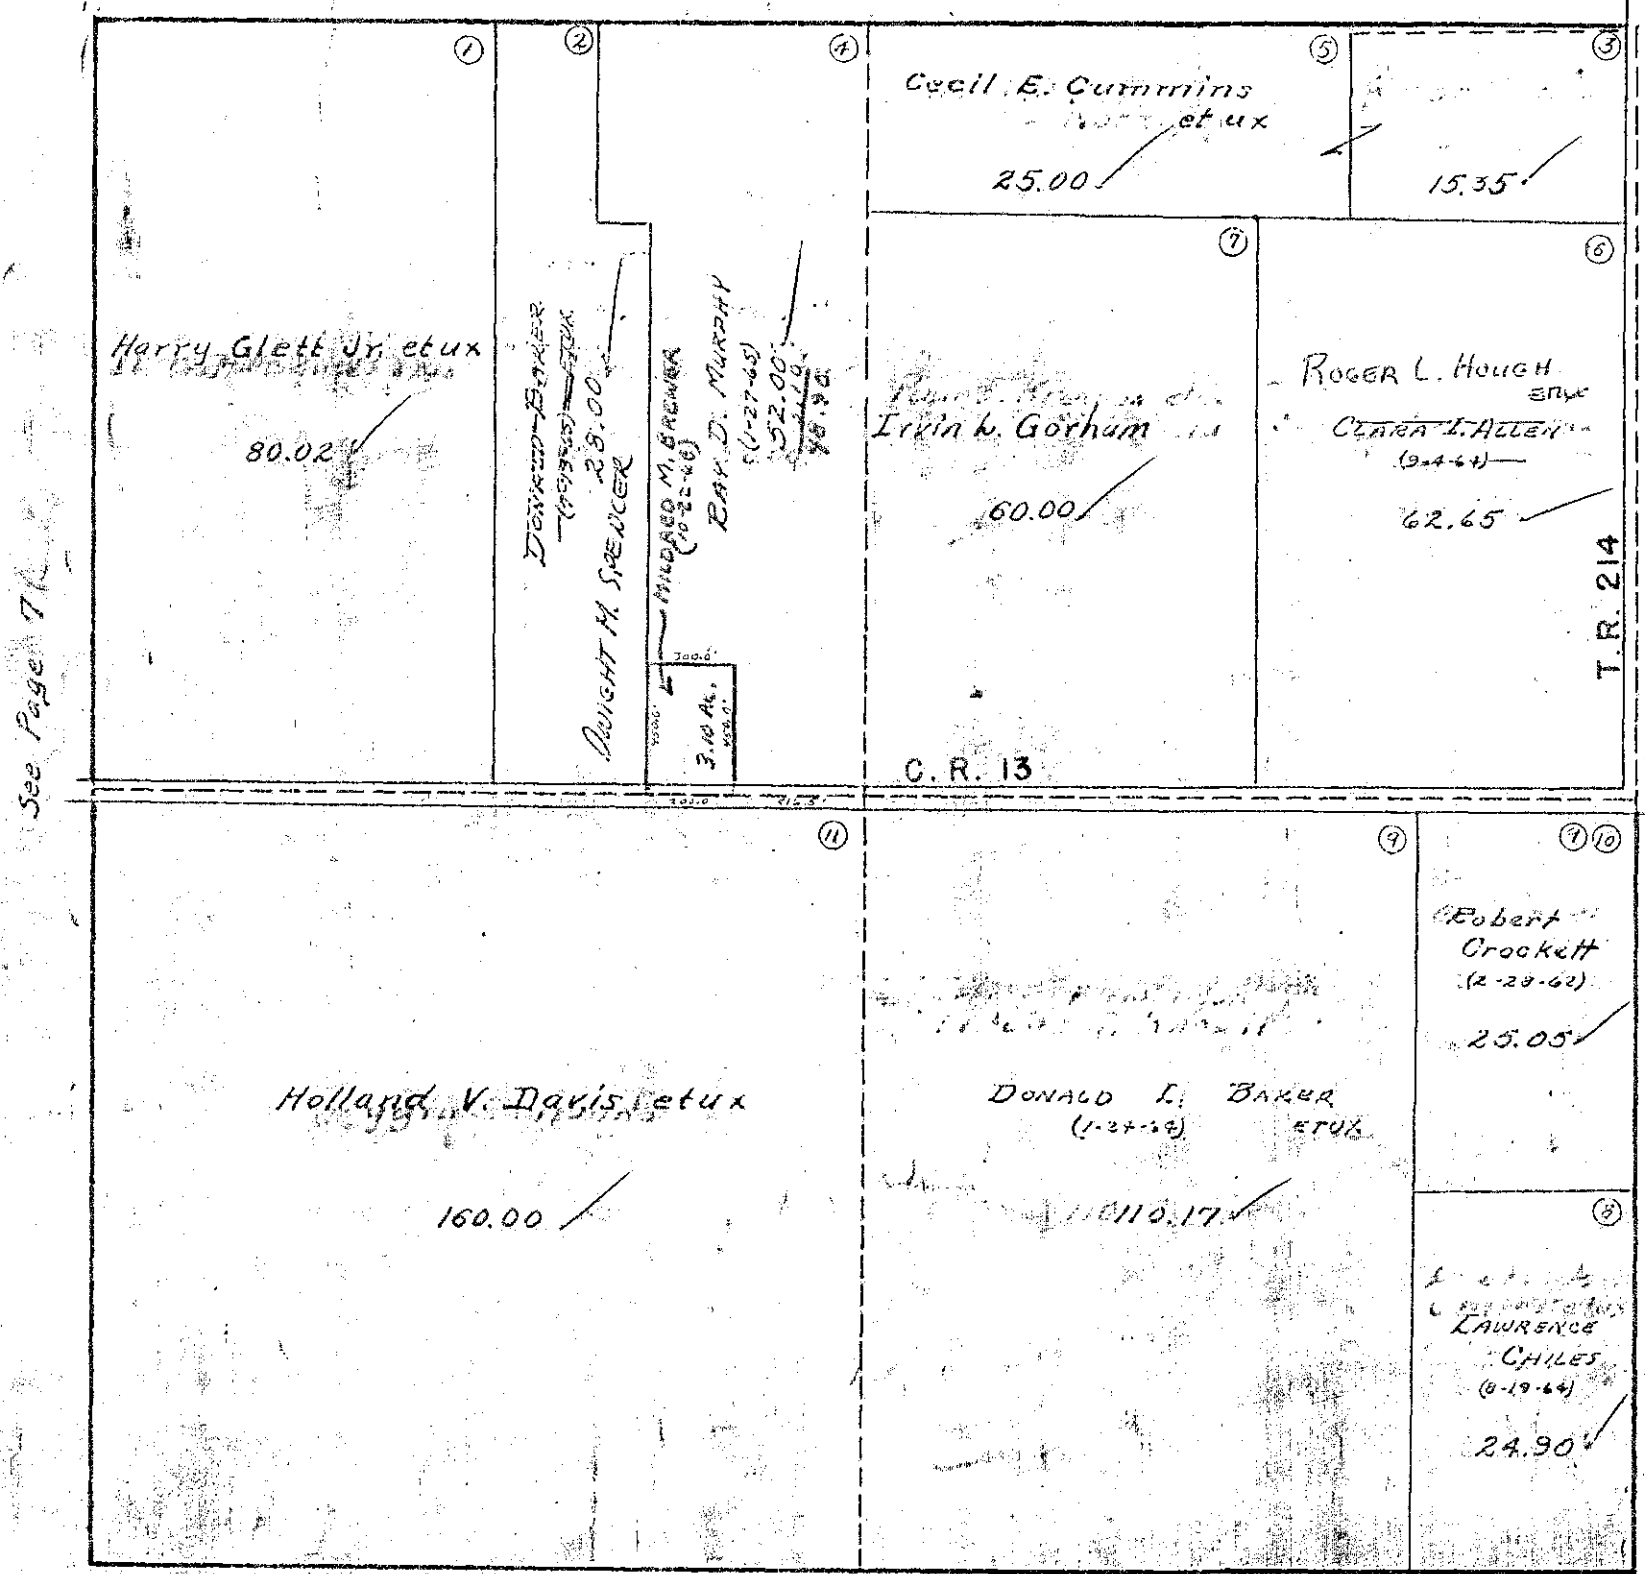 ①
Harry Glett Jr. et ux
80.02
②
DONALD BAKER
ETUX
28.00
DWIGHT M. SPENCER
④
MILDRED M. BREWER
(10-22-68)
RAY D. MURPHY
(1-27-65)
52.00
3.10
48.90
300.0'
450.0'
3.10 Ac.
450.0'
⑤
Cecil E. Cummins
et ux
25.00
③
15.35
⑦
Irvin L. Gorham
60.00
⑥
ROGER L. HOUGH
ETUX
CLARA I. ALLEN
(9-4-64)
62.65
T.R. 214
C. R. 13
See Page 7
⑪
Holland V. Davis etux
160.00
⑨
DONALD L. BAKER
ETUX
110.17
⑨ ⑩
Robert
Crockett
(2-28-62)
25.05
⑧
LAWRENCE
CHILES
(8-19-64)
24.90